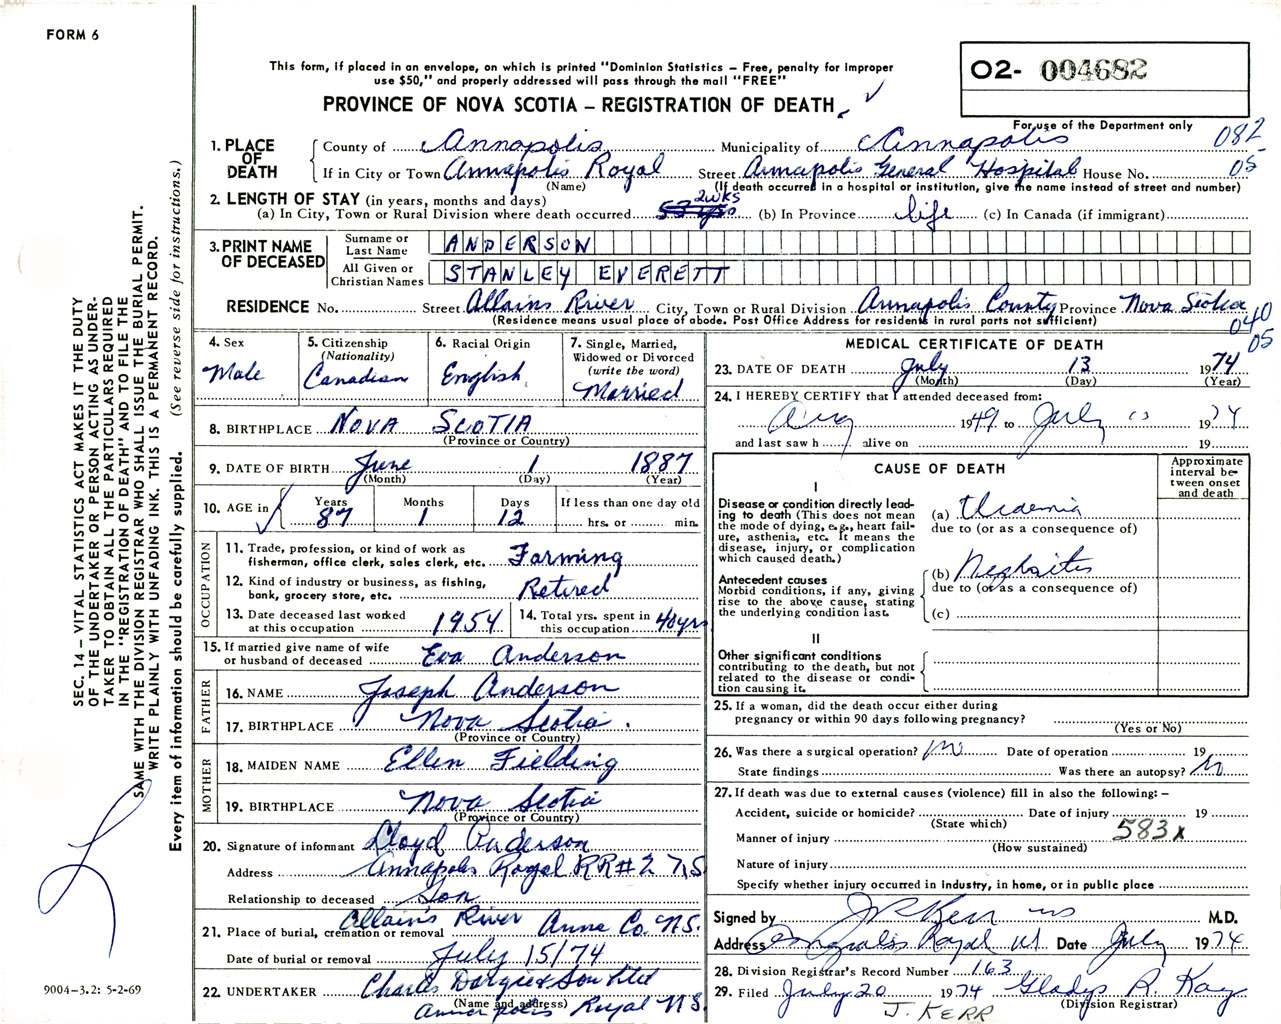 FORM 6
This form, if placed in an envelope, on which is printed "Dominion Statistics – Free, penalty for improper
use $50," and properly addressed will pass through the mail "FREE"
O2- 004682
PROVINCE OF NOVA SCOTIA – REGISTRATION OF DEATH
For use of the Department only
082
05
1. PLACE OF DEATH
County of Annapolis Municipality of Annapolis
If in City or Town Annapolis Royal Street Annapolis General Hospital House No.
(Name) (If death occurred in a hospital or institution, give the name instead of street and number)
2. LENGTH OF STAY (in years, months and days)
(a) In City, Town or Rural Division where death occurred 2 WKS (b) In Province life (c) In Canada (if immigrant)
3. PRINT NAME OF DECEASED
Surname or Last Name ANDERSON
All Given or Christian Names STANLEY EVERETT
RESIDENCE No. Street Allains River City, Town or Rural Division Annapolis County Province Nova Scotia
(Residence means usual place of abode. Post Office Address for residents in rural parts not sufficient)
040
05
4. Sex Male
5. Citizenship (Nationality) Canadian
6. Racial Origin English
7. Single, Married, Widowed or Divorced (write the word) Married
8. BIRTHPLACE NOVA SCOTIA
(Province or Country)
9. DATE OF BIRTH June 1 1887
(Month) (Day) (Year)
10. AGE in Years 87 Months 1 Days 12 If less than one day old hrs. or min.
OCCUPATION
11. Trade, profession, or kind of work as fisherman, office clerk, sales clerk, etc. Farming
12. Kind of industry or business, as fishing, bank, grocery store, etc. Retired
13. Date deceased last worked at this occupation 1954
14. Total yrs. spent in this occupation 40 yrs
15. If married give name of wife or husband of deceased Eva Anderson
FATHER
16. NAME Joseph Anderson
17. BIRTHPLACE Nova Scotia.
(Province or Country)
MOTHER
18. MAIDEN NAME Ellen Fielding
19. BIRTHPLACE Nova Scotia
(Province or Country)
20. Signature of informant Lloyd Anderson
Address Annapolis Royal RR#2 N.S.
Relationship to deceased Son
21. Place of burial, cremation or removal Allain's River Anna Co. N.S.
Date of burial or removal July 15/74
22. UNDERTAKER Charles Dargie & Son Ltd
(Name and address) Annapolis Royal N.S.
MEDICAL CERTIFICATE OF DEATH
23. DATE OF DEATH July 13 1974
(Month) (Day) (Year)
24. I HEREBY CERTIFY that I attended deceased from:
Aug 1949 to July 13 1974
and last saw h alive on 19
CAUSE OF DEATH
Approximate interval between onset and death
I
Disease or condition directly leading to death (This does not mean the mode of dying, e.g., heart failure, asthenia, etc. It means the disease, injury, or complication which caused death.)
(a) Uraemia
due to (or as a consequence of)
Antecedent causes
Morbid conditions, if any, giving rise to the above cause, stating the underlying condition last.
(b) Nephritis
due to (or as a consequence of)
(c)
II
Other significant conditions
contributing to the death, but not related to the disease or condition causing it.
25. If a woman, did the death occur either during
pregnancy or within 90 days following pregnancy?
(Yes or No)
26. Was there a surgical operation? No Date of operation 19
State findings Was there an autopsy? No
27. If death was due to external causes (violence) fill in also the following: –
Accident, suicide or homicide? Date of injury 19
(State which)
583x
Manner of injury
(How sustained)
Nature of injury
Specify whether injury occurred in industry, in home, or in public place
Signed by Kerr M.D.
Address Annapolis Royal Date July 1974
28. Division Registrar's Record Number 163
29. Filed July 20 1974 Gladys R. Kay
(Division Registrar)
J. KERR
SEC. 14 – VITAL STATISTICS ACT MAKES IT THE DUTY
OF THE UNDERTAKER OR PERSON ACTING AS UNDER-
TAKER TO OBTAIN ALL THE PARTICULARS REQUIRED
IN THE "REGISTRATION OF DEATH" AND TO FILE THE
SAME WITH THE DIVISION REGISTRAR WHO SHALL ISSUE THE BURIAL PERMIT.
WRITE PLAINLY WITH UNFADING INK. THIS IS A PERMANENT RECORD.
Every item of information should be carefully supplied. (See reverse side for instructions.)
9004–3.2: 5-2-69